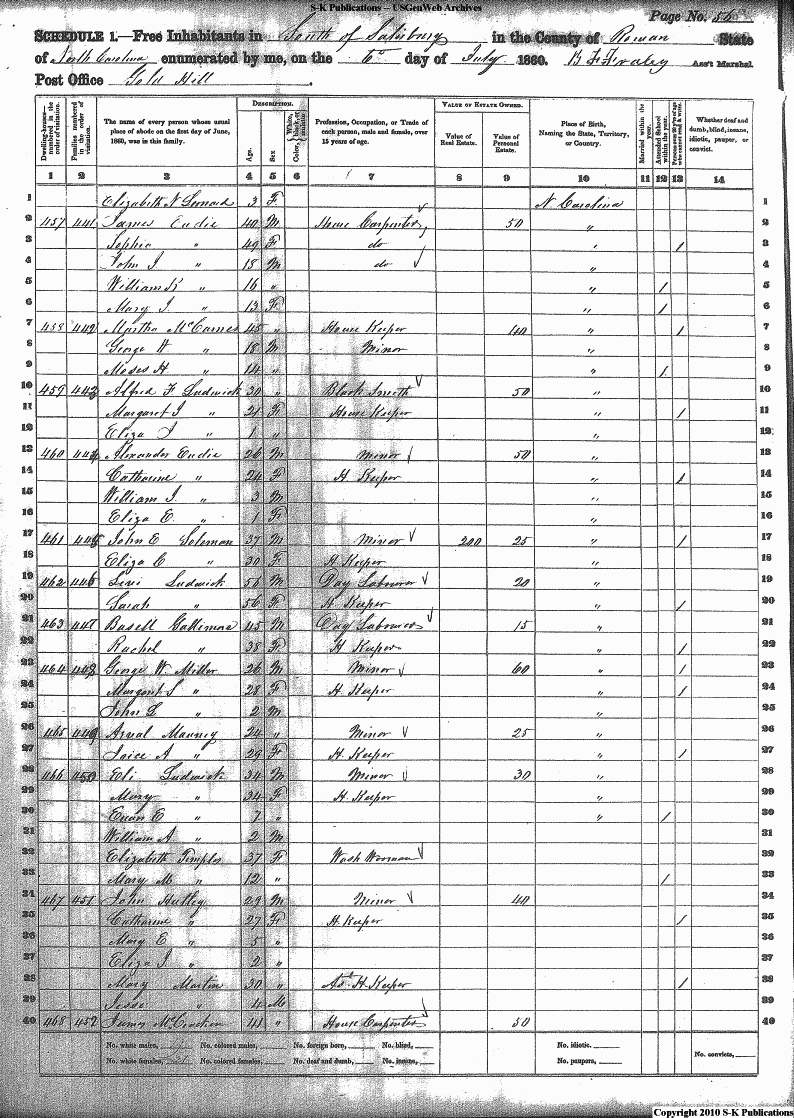 S-K Publications – USGenWeb Archives
Page No. 56
SCHEDULE 1.—Free Inhabitants in South of Salisbury in the County of Rowan State
of North Carolina enumerated by me, on the 6th day of July 1860. B F Fraley Ass't Marshal.
Post Office Gold Hill
Dwelling-houses— numbered in the order of visitation.
Families numbered in the order of visitation.
The name of every person whose usual place of abode on the first day of June, 1860, was in this family.
DESCRIPTION.
Age.
Sex
Color, White, black, or mulatto
Profession, Occupation, or Trade of each person, male and female, over 15 years of age.
VALUE OF ESTATE OWNED.
Value of Real Estate.
Value of Personal Estate.
Place of Birth, Naming the State, Territory, or Country.
Married within the year.
Attended School within the year.
Persons over 20 y'rs of age who cannot read & write.
Whether deaf and dumb, blind, insane, idiotic, pauper, or convict.
1 2 3 4 5 6 7 8 9 10 11 12 13 14
1 Elizabeth N 3 F N Carolina 1
2 457 441 James Eudie 40 M House Carpenter 50 " 2
3 Sophia " 49 F do " / 3
4 John J " 18 M do " 4
5 William K " 16 " " / 5
6 Mary J. " 13 F " / 6
7 458 442 Martha McCarnes 45 " House Keeper 40 " / 7
8 George W " 18 M Minor " 8
9 Moses H " 14 " " / 9
10 459 443 Alfred F Ludwick 30 " Black Smith 50 " 10
11 Margaret J " 21 F House Keeper " / 11
12 Eliza J " 1 " " 12
13 460 444 Alexander Eudie 26 M Minor 50 " 13
14 Catharine " 24 F H Keeper " / 14
15 William J. " 3 M " 15
16 Eliza E. " 1 F " 16
17 461 445 John E Soloman 37 M Minor 200 25 " / 17
18 Eliza C " 30 F H Keeper " 18
19 462 446 Levi Ludwick 56 M Day Labourer 20 " 19
20 Sarah " 56 F H Keeper " / 20
21 463 447 Gallimore 45 M Day Labourer 15 " 21
22 Rachel " 38 F H Keeper " / 22
23 464 448 George W. Miller 26 M Minor 60 " / 23
24 Margaret S " 28 F H. Keeper " / 24
25 John L " 2 M " 25
26 465 449 Arval Mauney 24 " Minor 25 " 26
27 A " 29 F H. Keeper " / 27
28 466 450 Eli Ludwick 34 M Minor 30 " 28
29 Mary " 34 F H. Keeper " 29
30 E " 7 " " / 30
31 William A " 2 M 31
32 Elizabeth 37 F Wash Woman 32
33 Mary M " 12 " / 33
34 467 451 John Hatley 29 M Minor 40 34
35 Catharine " 27 F H. Keeper / 35
36 Mary E " 5 " 36
37 Eliza J. " 2 " 37
38 Mary Martin 30 " Ast H Keeper / 38
39 Jesse " 4 M 39
40 468 452 McCracken 41 " House Carpenter 50 40
No. white males, No. colored males, No. foreign born, No. blind, No. idiotic,
No. white females, No. colored females, No. deaf and dumb, No. insane, No. paupers, No. convicts,
Copyright 2010 S-K Publications